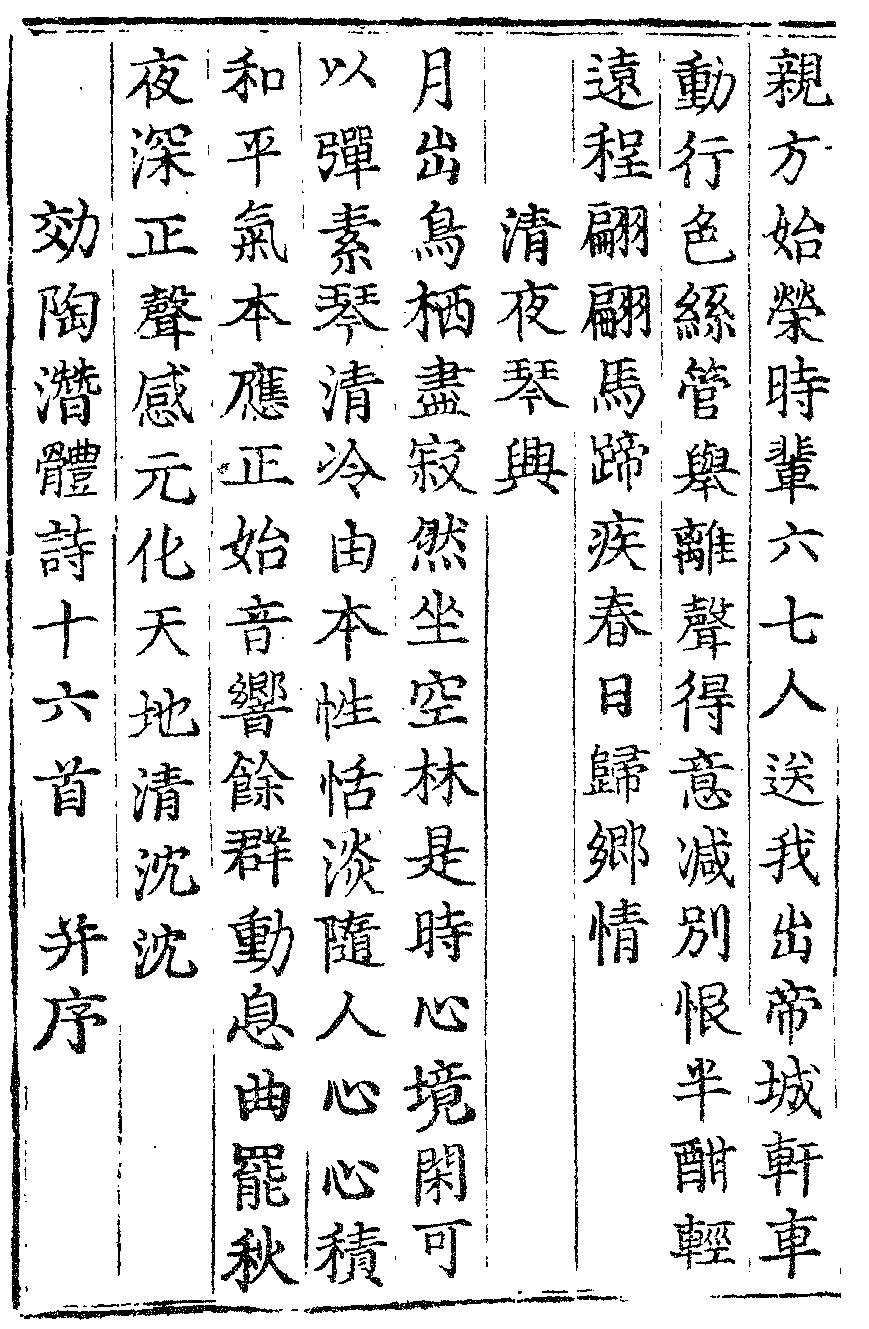 親方始榮時輩六七人送我出帝城軒車
動行色絲管舉離聲得意減別恨半酣輕
遠程翩翩馬蹄疾春日歸鄉情
清夜琴興
月出鳥栖盡寂然坐空林是時心境閑可
以彈素琴清冷由本性恬淡隨人心心積
和平氣本應正始音響餘群動息曲罷秋
夜深正聲感元化天地清沈沈
効陶潛體詩十六首　并序